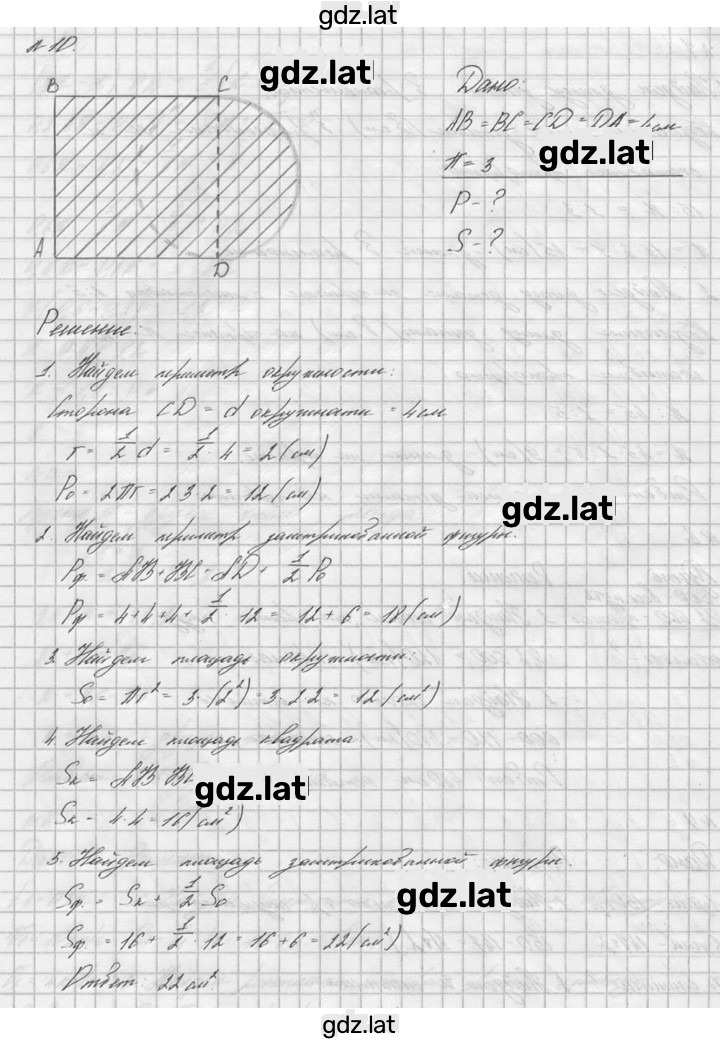 gdz.lat
№ 10.
gdz.lat
B C
A D
Дано:
AB = BC = CD = DA = 4 см
gdz.lat
π = 3
P - ?
S - ?
Решение:
1. Найдем периметр окружности:
Сторона CD = d окружности = 4 см
r = 1/2 d = 1/2 · 4 = 2 (см)
P₀ = 2πr = 2·3·2 = 12 (см)
gdz.lat
2. Найдем периметр заштрихованной фигуры.
Pф. = AB + BC = AD + 1/2 P₀
Pф = 4+4+4+ 1/2 · 12 = 12 + 6 = 18 (см)
3. Найдем площадь окружности:
S₀ = πr² = 3 · (2²) = 3 · 2·2 = 12 (см²)
4. Найдем площадь квадрата
Sк = AB · BC
gdz.lat
Sк = 4·4 = 16 (см²)
5. Найдем площадь заштрихованной фигуры.
Sф. = Sк + 1/2 S₀
gdz.lat
Sф. = 16 + 1/2 · 12 = 16 + 6 = 22 (см²)
Ответ: 22 см².
gdz.lat